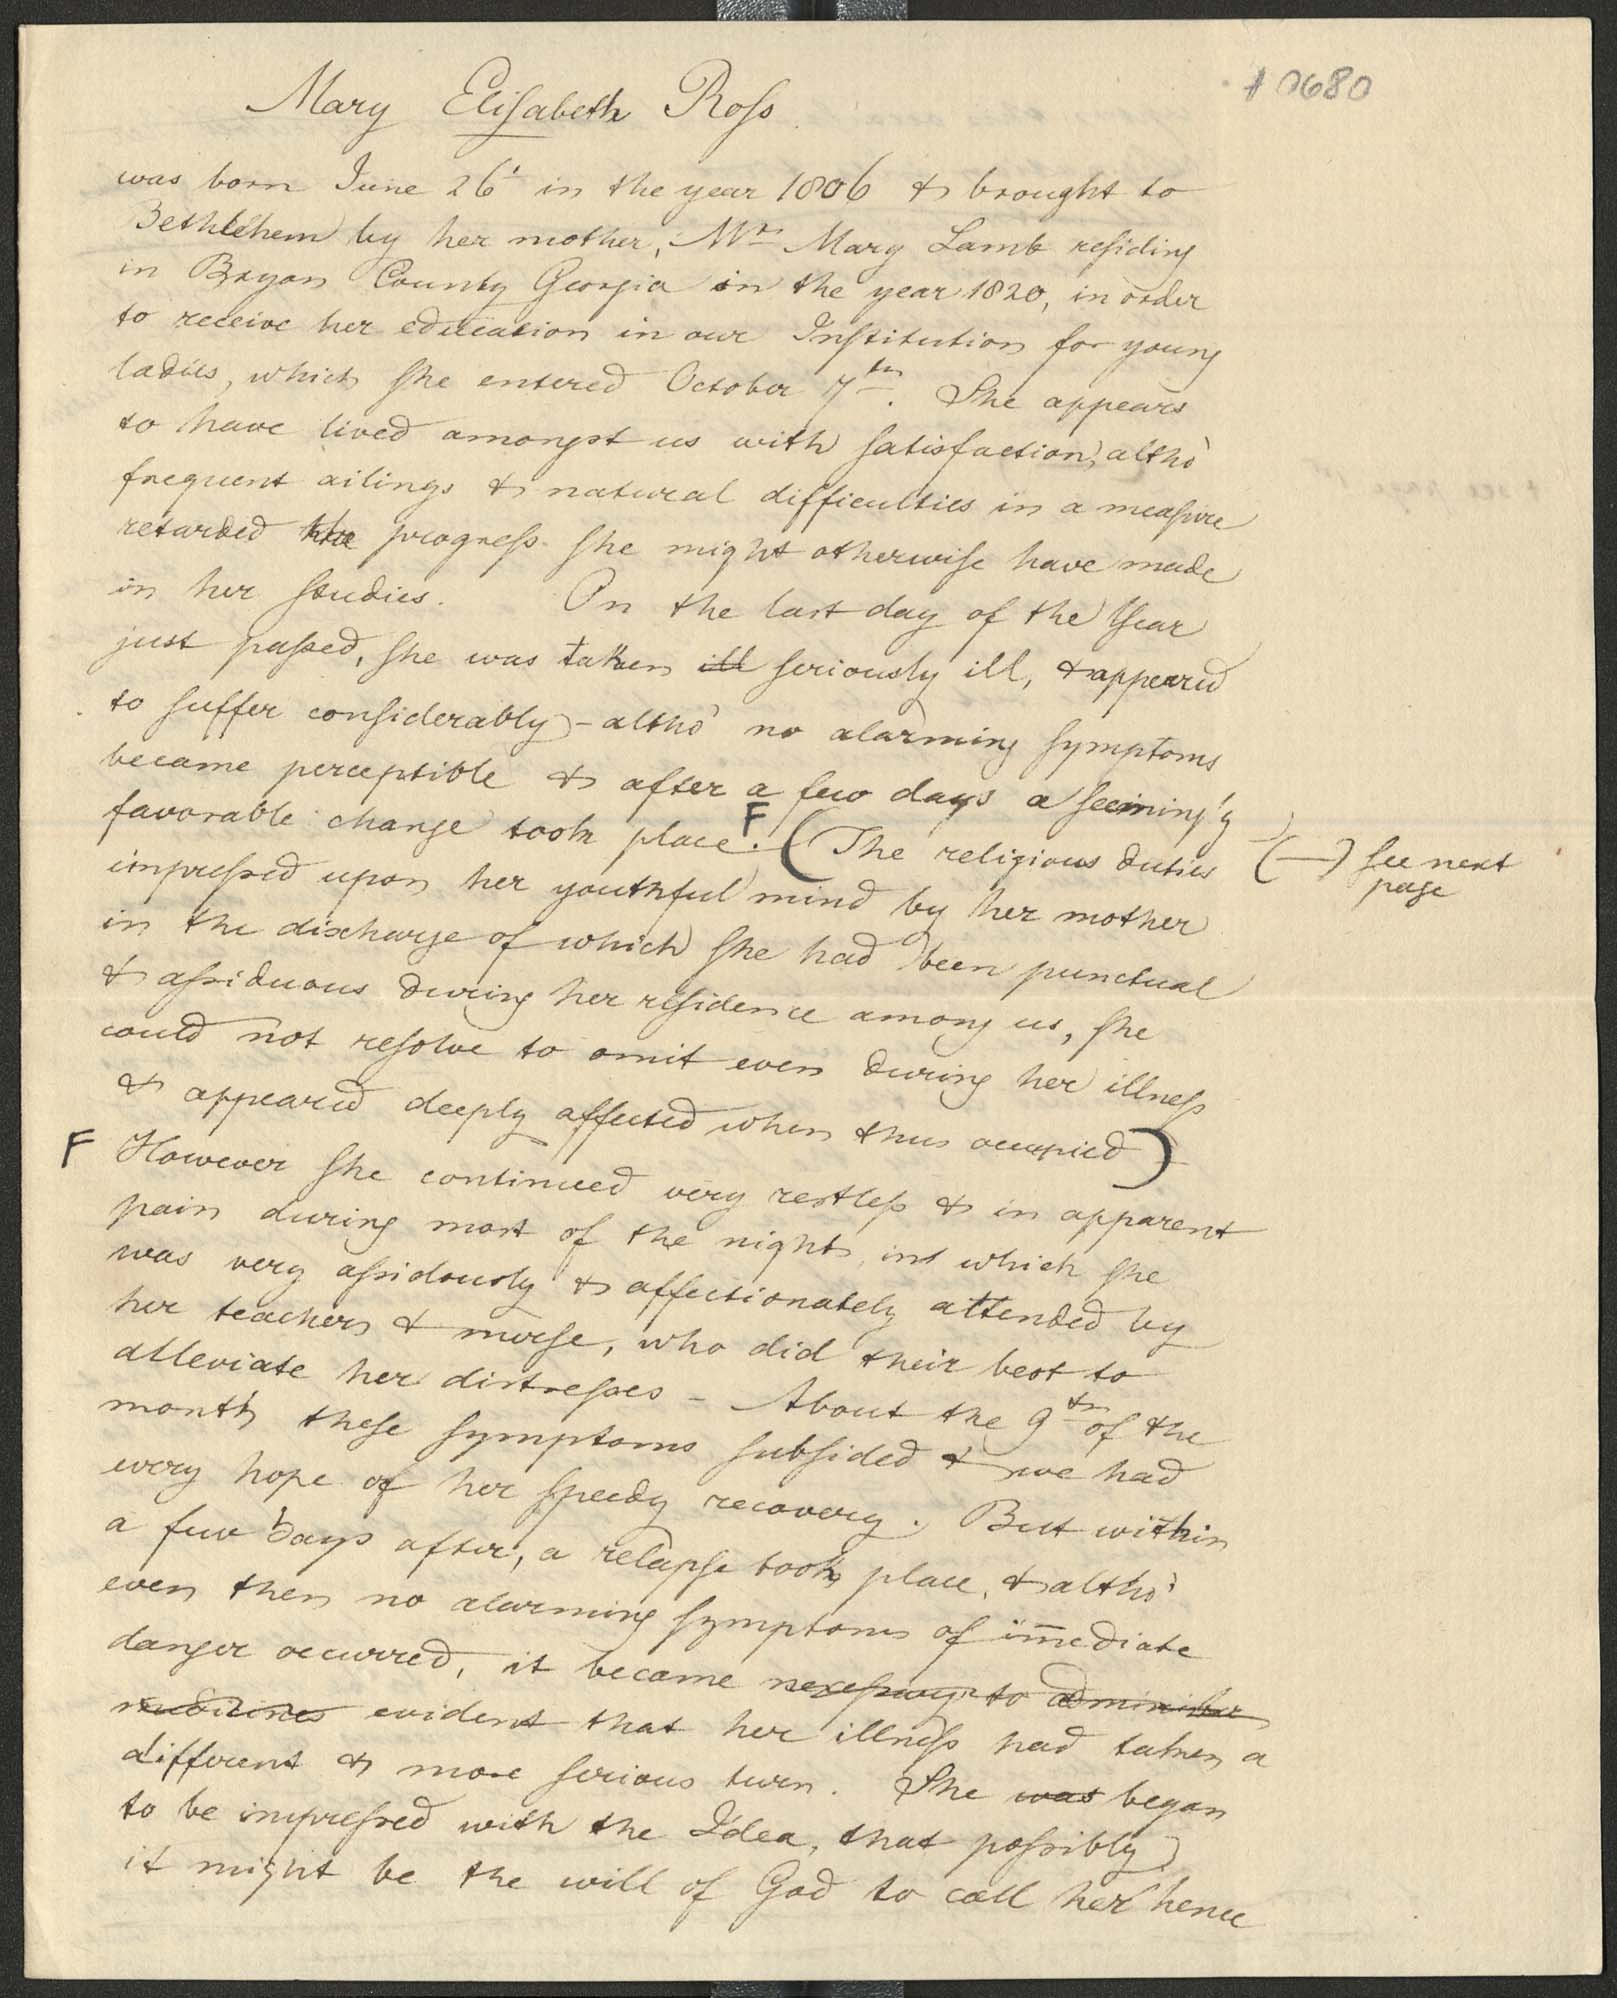 # 0680
Mary Elisabeth Ross
was born June 26' in the year 1806 & brought to
Bethlehem by her mother, Mrs Mary Lamb residing
in Bryan County Georgia in the year 1820, in order
to receive her education in our Institution for young
ladies, which she entered October 7th. She appears
to have lived amongst us with satisfaction, altho'
frequent ailings & natural difficulties in a measure
retarded the progress she might otherwise have made
in her studies. On the last day of the Year
just passed, she was taken ill seriously ill, & appeared
to suffer considerably - altho' no alarming symptoms
became perceptible & after a few days a seeming'y
favorable change took place. F (The religious duties
(—) see next
page
impressed upon her youthful mind by her mother
in the discharge of which she had been punctual
& assiduous during her residence among us, she
could not resolve to omit even during her illness
& appeared deeply affected when thus occupied)
F However she continued very restless & in apparent
pain during most of the night, in which she
was very assidously & affectionately attended by
her teachers & nurse, who did their best to
alleviate her distresses - About the 9th of the
month these symptoms subsided & we had
every hope of her speedy recovery. But within
a few days after, a relapse took place, & altho'
even then no alarming symptoms of immediate
danger occurred, it became necessary to administer
medicines evident that her illness had taken a
different & more serious turn. She was began
to be impressed with the Idea, that possibly
it might be the will of God to call her hence